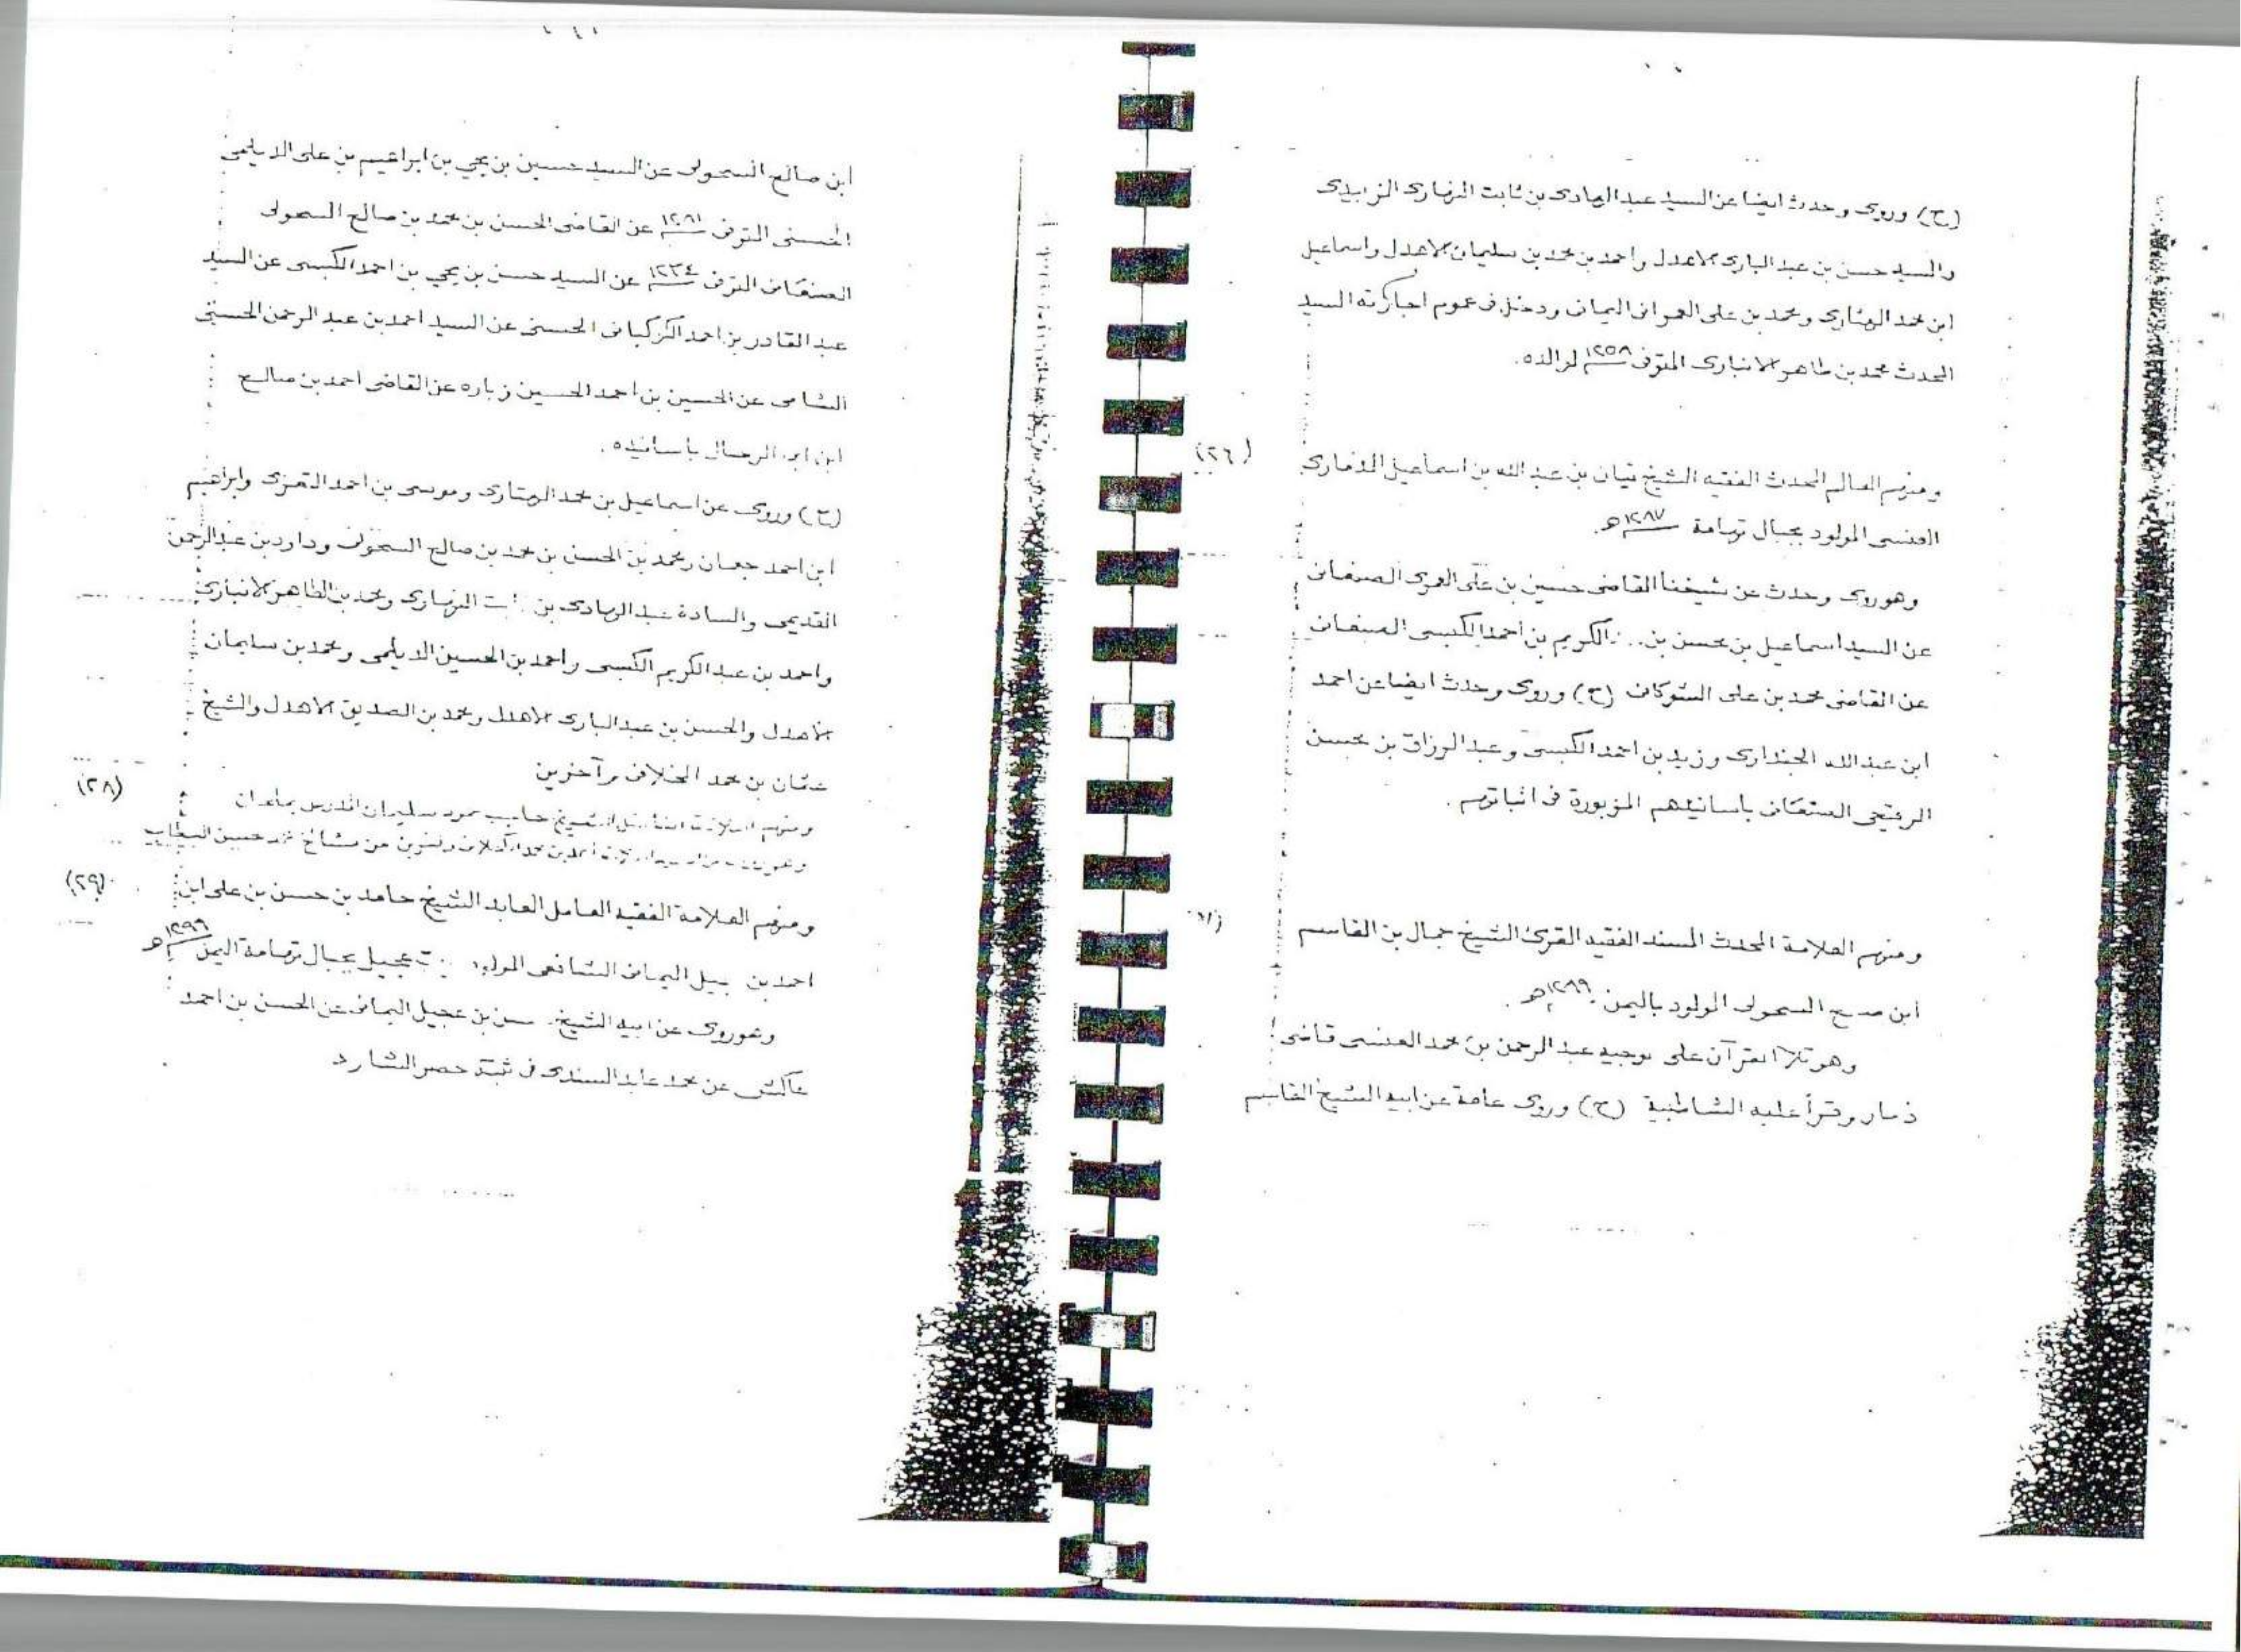 (ح) وروى وحدث ايضا عن السيد عبد الهادى بن ثابت النهارى الزبيدى
والسيد حسن بن عبد البارى الاهدل واحمد بن محمد بن سليمان الاهدل واسماعيل
ابن محمد الهتارى ومحمد بن على العمرانى اليمانى ودخل فى عموم اجازته السيد
المحدث محمد بن طاهر الانبارى المتوفى ١٢٥٨ لوالده.
(٢٦)
ومنهم العالم المحدث الفقيه الشيخ بن عبد الله بن اسماعيل الذمارى
العنسى المولود بجبال تهامة ١٢٨٧ه.
وهو روى وحدث عن شيخنا القاضى حسين بن على العمرى الصنعانى
عن السيد اسماعيل بن محسن بن الكريم بن احمد الكبسى الصنعانى
عن القاضى محمد بن على الشوكانى (ح) وروى وحدث ايضا عن احمد
ابن عبد الله الجندارى وزيد بن احمد الكبسى وعبد الرزاق بن محسن
الرقيحى الصنعانى بأسانيدهم المزبورة فى اثباتهم.
ومنهم العلامة المحدث المسند الفقيه المقرئ الشيخ جمال بن القاسم
ابن السحولى المولود باليمن ١٢٨٩ه.
وهو تلا القرآن على عبد الرحمن بن محمد العنسى قاضى
ذمار وقرأ عليه الشاطبية (ح) وروى عامة عن ابيه الشيخ القاسم
ابن صالح السحولى عن السيد حسين بن يحيى بن ابراهيم بن على الديلمى
الحسنى المتوفى عن القاضى الحسن بن محمد بن صالح السحولى
الصنعانى المتوفى ١٢٣٤ عن السيد حسن بن يحيى بن احمد الكبسى عن السيد
عبد القادر بن احمد الكوكبانى الحسنى عن السيد احمد بن عبد الرحمن الحسنى
الشامى عن الحسين بن احمد الحسين زباره عن القاضى احمد بن صالح
ابن ابى الرجال بأسانيده.
(ح) وروى عن اسماعيل بن محمد الهتارى وموسى بن احمد التعزى وابراهيم
ابن احمد جعمان ومحمد بن الحسن بن محمد بن صالح السحولى وداود بن عبد الرحمن
القديمى والسادة عبد الهادى بن النهارى ومحمد بن الطاهر الانبارى
واحمد بن عبد الكريم الكبسى واحمد بن الحسين الديلمى ومحمد بن سليمان
الاهدل والحسن بن عبد البارى الاهدل ومحمد بن الصديق الاهدل والشيخ
عثمان بن محمد وآخرين
(٢٨)
ومنهم الشيخ سليمان المدرس
من مشائخ محمد حسين
(٢٩)
ومنهم العلامة الفقيه العامل العابد الشيخ حامد بن حسن بن على ابن
احمد بن اليمانى الشافعى عجيل بجبال تهامة اليمن ١٢٩٩ه
وهو روى عن ابيه الشيخ بن عجيل اليمانى عن الحسن بن احمد
عاكش عن محمد عابد السندى فى ثبته حصر الشارد